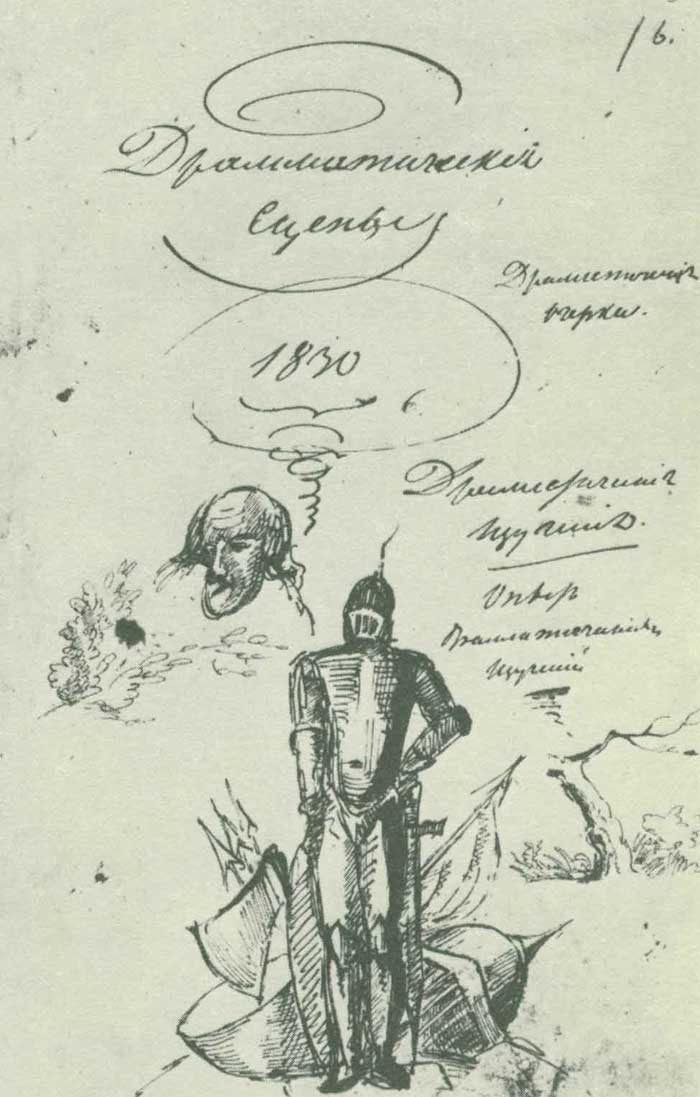 16.
Драмматическiя
Сцены
1830
Драматическiе
очерки.
Драматическiя
Изученiя.
Опыт
драмматическихъ
Изученiй